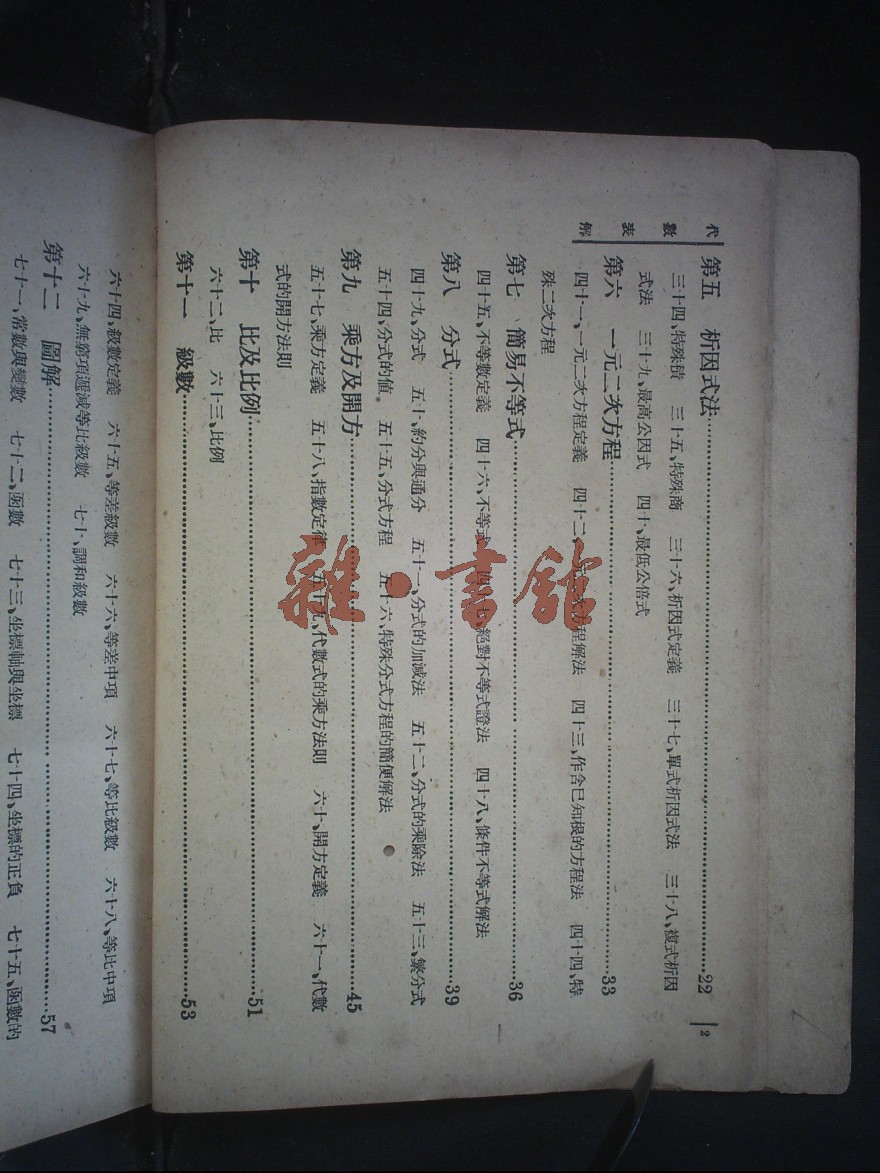 代數表解
2
第五 析因式法……22
三十四、特殊積 三十五、特殊商 三十六、析因式定義 三十七、單式析因式法 三十八、複式析因
式法 三十九、最高公因式 四十、最低公倍式
第六 一元二次方程……33
四十一、一元二次方程定義 四十二、 次方程解法 四十三、作含已知根的方程法 四十四、特
殊二次方程
第七 簡易不等式……36
四十五、不等數定義 四十六、不等式 四十七、絕對不等式證法 四十八、條件不等式解法
第八 分式……39
四十九、分式 五十、約分與通分 五十一、分式的加減法 五十二、分式的乘除法 五十三、繁分式
五十四、分式的値 五十五、分式方程 五十六、特殊分式方程的簡便解法
第九 乘方及開方……45
五十七、乘方定義 五十八、指數定律 五十九、代數式的乘方法則 六十、開方定義 六十一、代數
式的開方法則
第十 比及比例……51
六十二、比 六十三、比例
第十一 級數……53
六十四、級數定義 六十五、等差級數 六十六、等差中項 六十七、等比級數 六十八、等比中項
六十九、無窮項遞減等比級數 七十、調和級數
第十二 圖解……57
七十一、常數與變數 七十二、函數 七十三、坐標軸與坐標 七十四、坐標的正負 七十五、函數的
雜·書館